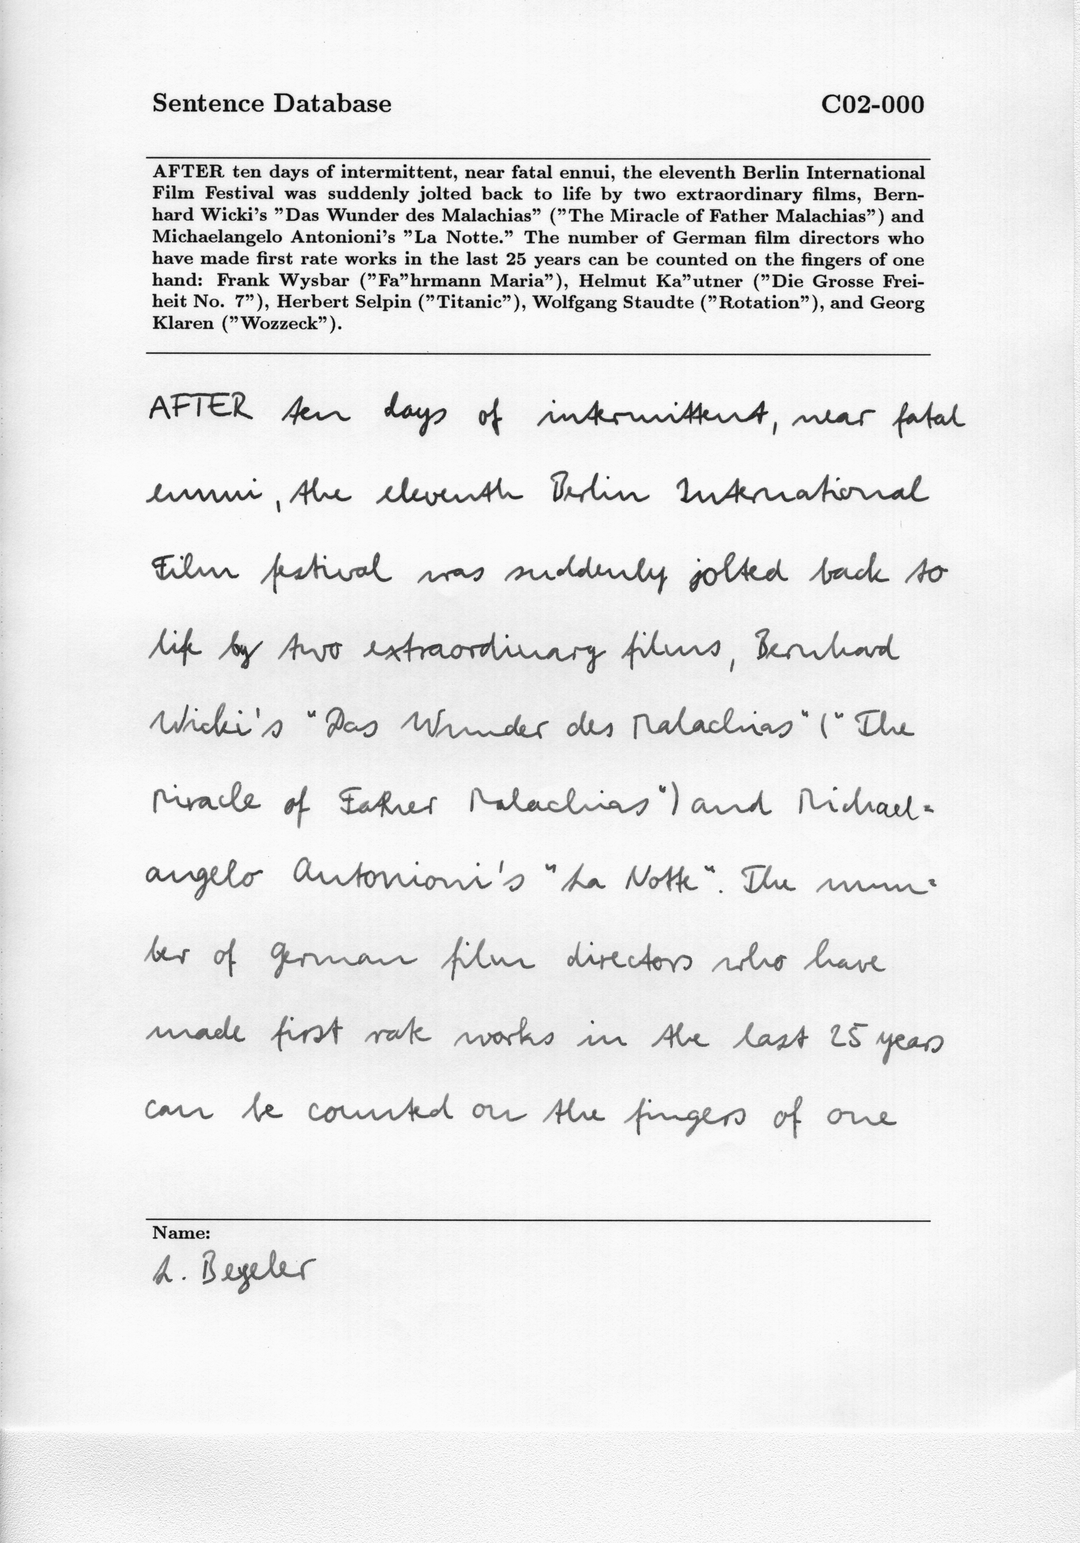 Sentence Database C02-000
AFTER ten days of intermittent, near fatal ennui, the eleventh Berlin International
Film Festival was suddenly jolted back to life by two extraordinary films, Bern-
hard Wicki's "Das Wunder des Malachias" ("The Miracle of Father Malachias") and
Michaelangelo Antonioni's "La Notte." The number of German film directors who
have made first rate works in the last 25 years can be counted on the fingers of one
hand: Frank Wysbar ("Fa"hrmann Maria"), Helmut Ka"utner ("Die Grosse Frei-
heit No. 7"), Herbert Selpin ("Titanic"), Wolfgang Staudte ("Rotation"), and Georg
Klaren ("Wozzeck").
AFTER ten days of intermittent, near fatal
ennui, the eleventh Berlin International
Film festival was suddenly jolted back to
life by two extraordinary films, Bernhard
Wicki's "Das Wunder des Malachias" ("The
Miracle of Father Malachias") and Michael-
angelo Antonioni's "La Notte". The num-
ber of German film directors who have
made first rate works in the last 25 years
can be counted on the fingers of one
Name:
L. Bezeler